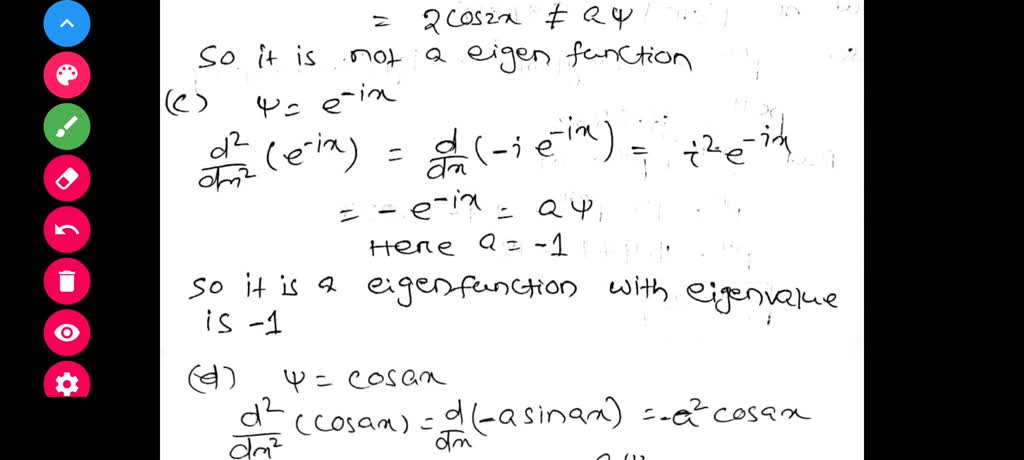 = 2cos2x ≠ aψ
So it is not a eigen function
(c) ψ = e^-ix
d²/dx² (e^-ix) = d/dx (-i e^-ix) = i² e^-ix
= - e^-ix = aψ
Here a = -1
So it is a eigenfunction with eigenvalue
is -1
(d) ψ = cosax
d²/dx² (cosax) = d/dx (-a sinax) = -a² cosax